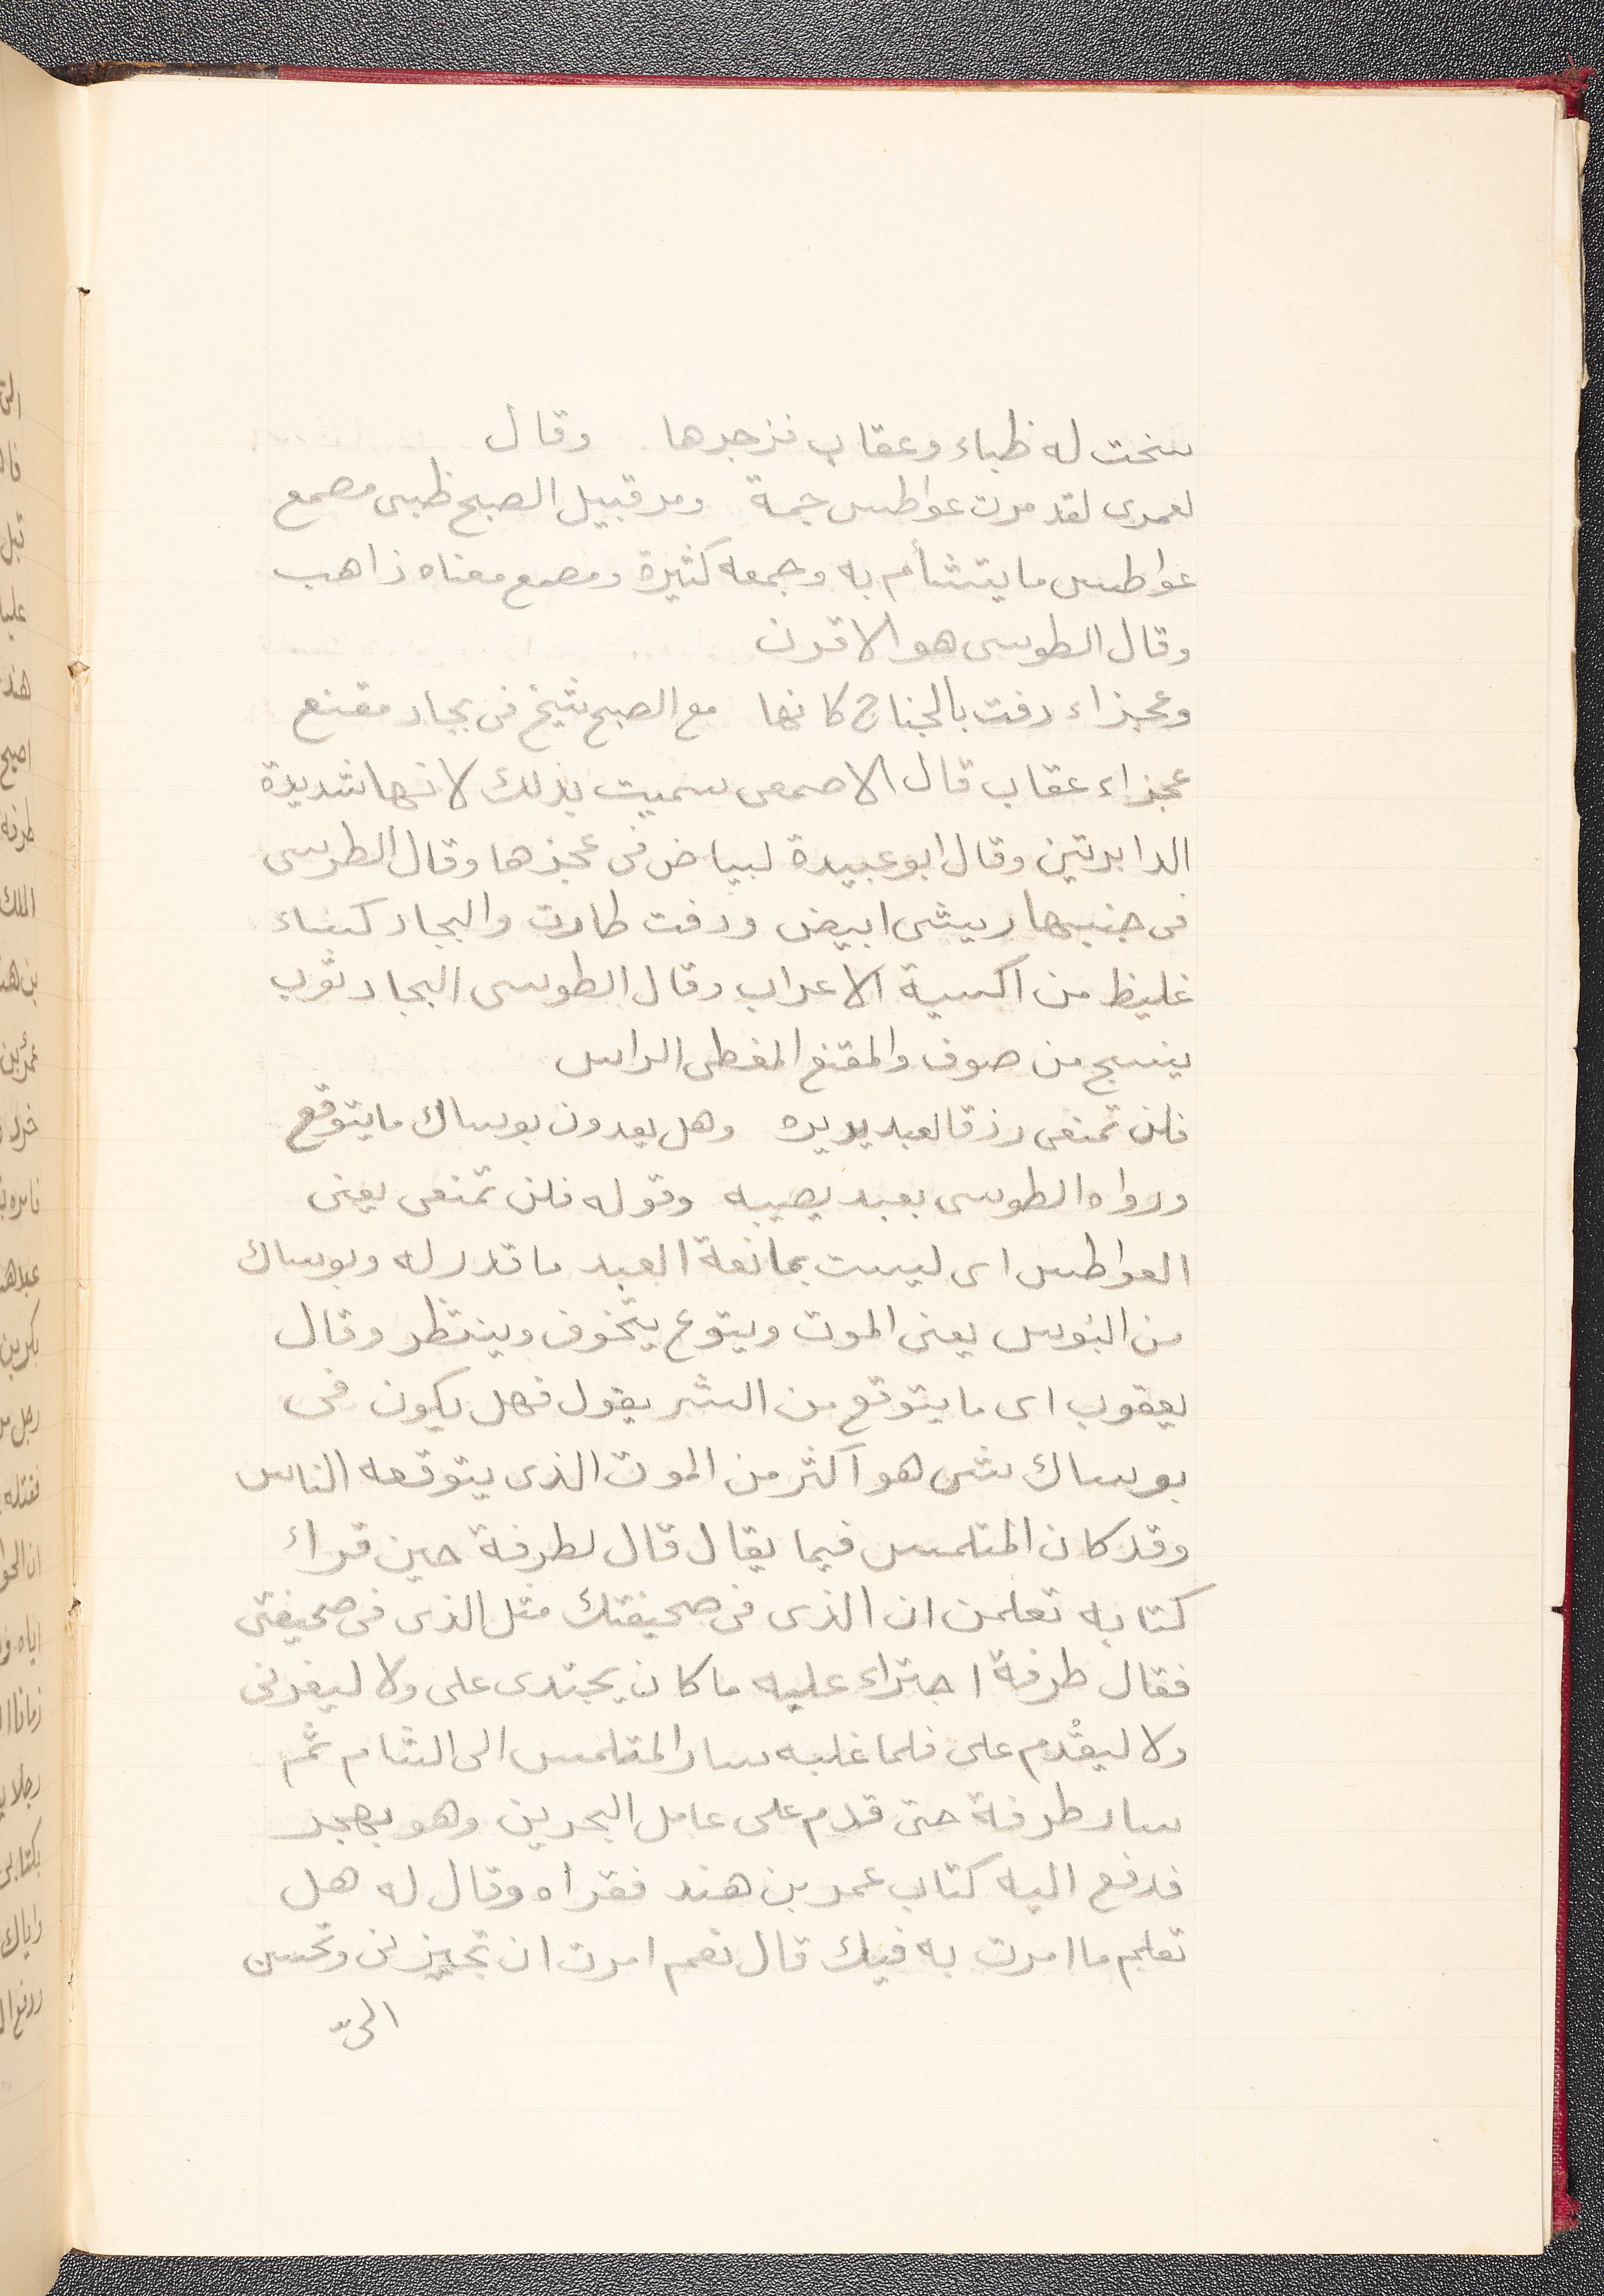 سنحت له ظباء وعقاب فزجرها وقال
لعمرى لقد مرت عواطس جمة ومر قبيل الصبح ظبى مصمع
عواطس ما يتشأم به وجمعه كثيرة ومصمع معناه ذاهب
وقال الطوسى هو الاقرن
وعجزاء دفت بالجناح كانها مع الصبح شيخ فى بجاد مقنع
عجزاء عقاب قال الاصمعى سميت بذلك لانها شديدة
الدابرتين وقال ابو عبيدة لبياض فى عجزها وقال الطوسى
فى جنبيها ريش ابيض ودفت طارت والبجاد كساء
غليظ من اكسية الاعراب وقال الطوسى البجاد ثوب
ينسج من صوف والمقنع المغطى الراس
فلن تمنعى رزقا لعبد يريده وهل يعدون بوساك ما يتوقع
ورواه الطوسى بعبد يصيبه وقوله فلن تمنعى يعنى
العواطس اى ليست بمانعة العبد ما قدر له وبوساك
من البوس يعنى الموت ويتوع يتخوف وينتظر وقال
يعقوب اى ما يتوقع من الشر يقول فهل يكون فى
بوساك شى هو اكثر من الموت الذى يتوقعه الناس
وقد كان المتلمس فيما يقال قال لطرفة حين قراء
كتابه تعلمن ان الذى فى صحيفتك مثل الذى فى صحيفتى
فقال طرفة اجتراء عليه ما كان يجتدى على ولا ليغرنى
ولا ليقْدم على فلما غلبه سار المتلمس الى الشام ثم
سار طرفة حتى قدم على عامل البحرين وهو بهجر
فدفع اليه كتاب عمر بن هند فقراه وقال له هل
تعلم ما امرت به فيك قال نعم امرت ان تجيزنى وتحسن
الىّ